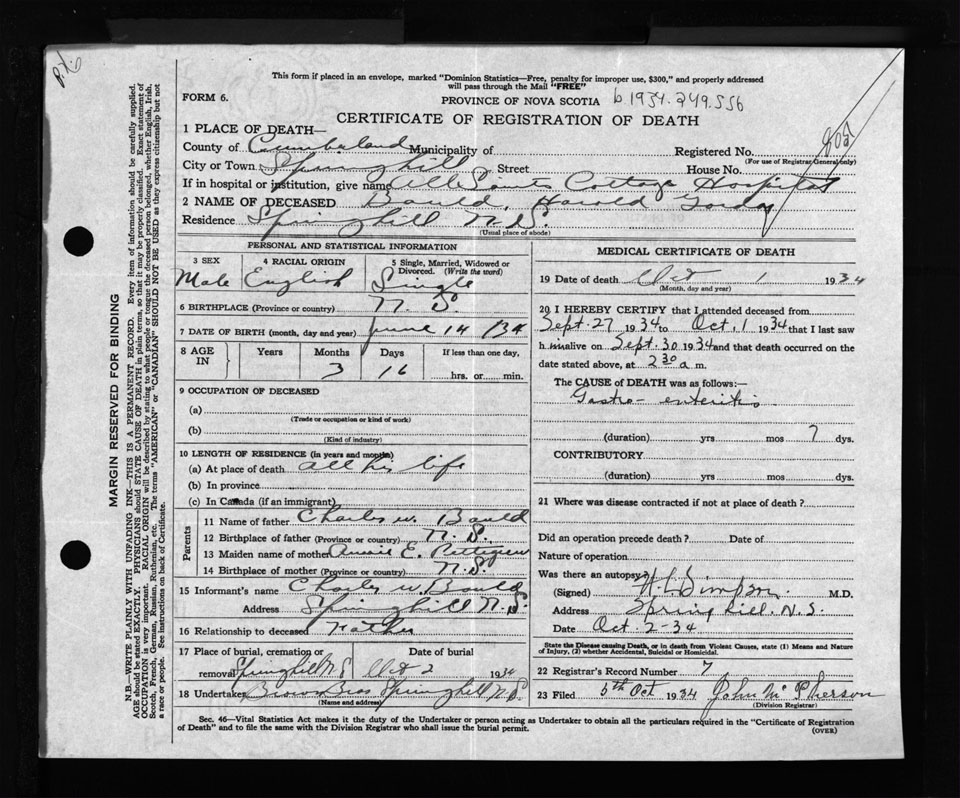 P.X.
This form if placed in an envelope, marked "Dominion Statistics—Free, penalty for improper use, $300," and properly addressed
will pass through the Mail "FREE"
FORM 6.
PROVINCE OF NOVA SCOTIA b.1934.249.556
CERTIFICATE OF REGISTRATION OF DEATH
1 PLACE OF DEATH—
County of Cumberland Municipality of Registered No.
(For use of Registrar General only)
City or Town Springhill Street House No.
If in hospital or institution, give name All Saints Cottage Hospital
2 NAME OF DECEASED Bauld, Harold Gordon
Residence Springhill N.S.
(Usual place of abode)
PERSONAL AND STATISTICAL INFORMATION
3 SEX 4 RACIAL ORIGIN 5 Single, Married, Widowed or Divorced. (Write the word)
Male English Single
6 BIRTHPLACE (Province or country) N.S.
7 DATE OF BIRTH (month, day and year) June 14 /34
8 AGE IN Years Months Days If less than one day,
3 16 hrs. or min.
9 OCCUPATION OF DECEASED
(a)
(Trade or occupation or kind of work)
(b)
(Kind of industry)
10 LENGTH OF RESIDENCE (in years and months)
(a) At place of death all his life
(b) In province
(c) In Canada (if an immigrant)
Parents
11 Name of father Charles W. Bauld
12 Birthplace of father (Province or country) N.S.
13 Maiden name of mother E. Pettigrew
14 Birthplace of mother (Province or country) N.S.
15 Informant's name Charles W. Bauld
Address Springhill N.S.
16 Relationship to deceased Father
17 Place of burial, cremation or removal Date of burial
Springhill N.S. Oct 2 1934
18 Undertaker Brown Bros Springhill N.S.
(Name and address)
MEDICAL CERTIFICATE OF DEATH
19 Date of death Oct 1 1934
(Month, day and year)
20 I HEREBY CERTIFY that I attended deceased from
Sept. 27 1934 to Oct. 1 1934 that I last saw
him alive on Sept. 30 1934 and that death occurred on the
date stated above, at 2 30 a m.
The CAUSE of DEATH was as follows:—
Gastro-enteritis
(duration) yrs mos 7 dys.
CONTRIBUTORY
(duration) yrs mos dys.
21 Where was disease contracted if not at place of death?
Did an operation precede death? Date of
Nature of operation
Was there an autopsy
(Signed) Simpson M.D.
Address Springhill. N.S.
Date Oct. 2-34
State the Disease causing Death, or in death from Violent Causes, state (1) Means and Nature
of Injury, (2) whether Accidental, Suicidal or Homicidal.
22 Registrar's Record Number 7
23 Filed 5th Oct 1934 John McPherson
(Division Registrar)
Sec. 46—Vital Statistics Act makes it the duty of the Undertaker or person acting as Undertaker to obtain all the particulars required in the "Certificate of Registration
of Death" and to file the same with the Division Registrar who shall issue the burial permit.
(OVER)
MARGIN RESERVED FOR BINDING
N.B.—WRITE PLAINLY WITH UNFADING INK—THIS IS A PERMANENT RECORD. Every item of information should be carefully supplied.
AGE should be stated EXACTLY. PHYSICIANS should STATE CAUSE OF DEATH in plain terms, so that it may be properly classified. Exact statement of
OCCUPATION is very important. RACIAL ORIGIN will be described by stating to what people or tongue the deceased person belonged, whether English, Irish,
Scotch, French, German, Russian, Ruthenian, etc. The terms "AMERICAN" or "CANADIAN" SHOULD NOT BE USED as they express citizenship but not
a race or people. See instructions on back of Certificate.